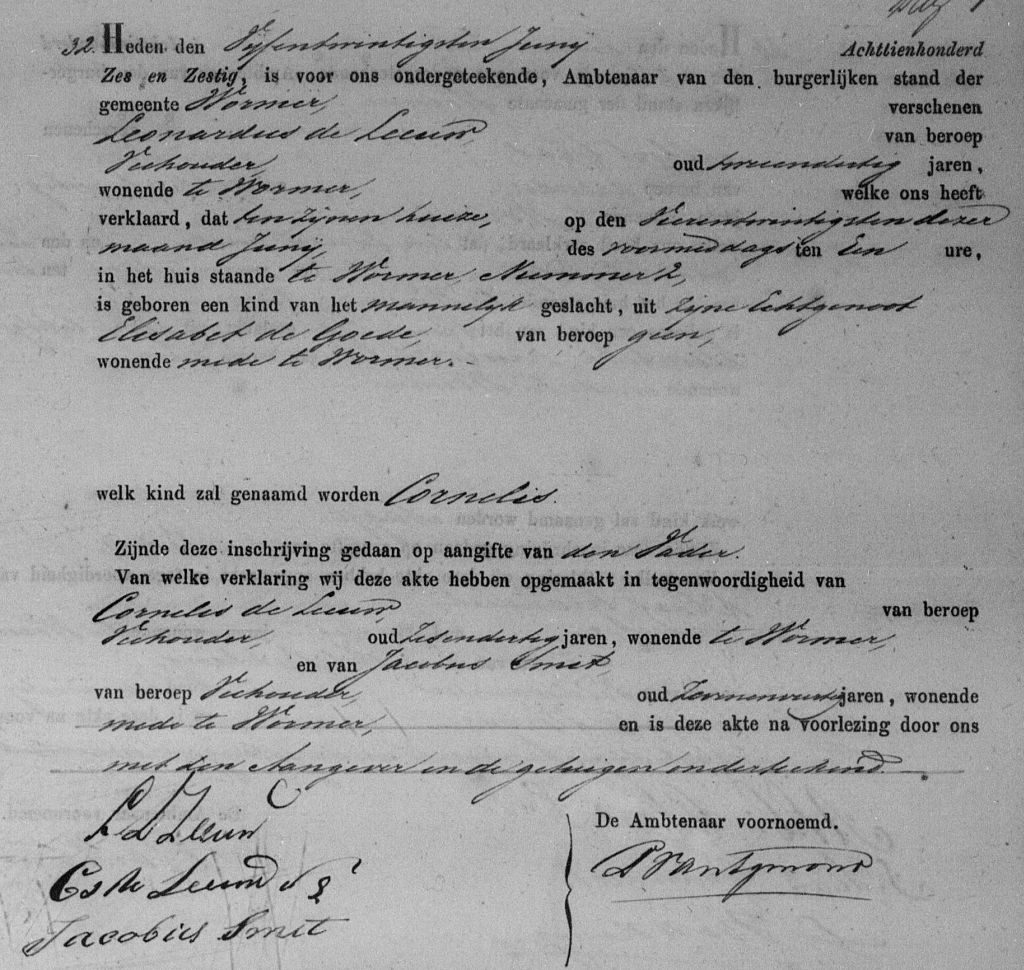 32. Heden den Vyfentwintigsten Juny Achttienhonderd
Zes en Zestig, is voor ons ondergeteekende, Ambtenaar van den burgerlijken stand der
gemeente Wormer, verschenen
Leonardus de Leeuw, van beroep
Veehouder, oud tweeendertig jaren,
wonende te Wormer, welke ons heeft
verklaard, dat ten zynen huize, op den Vierentwintigsten dezer
maand Juny, des voormiddags ten Een ure,
in het huis staande te Wormer, Nummer 2,
is geboren een kind van het mannelyk geslacht, uit zyne Echtgenoot
Elisabet de Goede, van beroep geen,
wonende mede te Wormer.
welk kind zal genaamd worden Cornelis.
Zijnde deze inschrijving gedaan op aangifte van den Vader.
Van welke verklaring wij deze akte hebben opgemaakt in tegenwoordigheid van
Cornelis de Leeuw, van beroep
Veehouder, oud Zesendertig jaren, wonende te Wormer,
en van Jacobus Smit,
van beroep Veehouder, oud Zevenenveertig jaren, wonende
mede te Wormer, en is deze akte na voorlezing door ons
met den Aangever en de getuigen onderteekend.
L d Leeuw
De Ambtenaar voornoemd.
Cs de Leeuw
Jacobus Smit